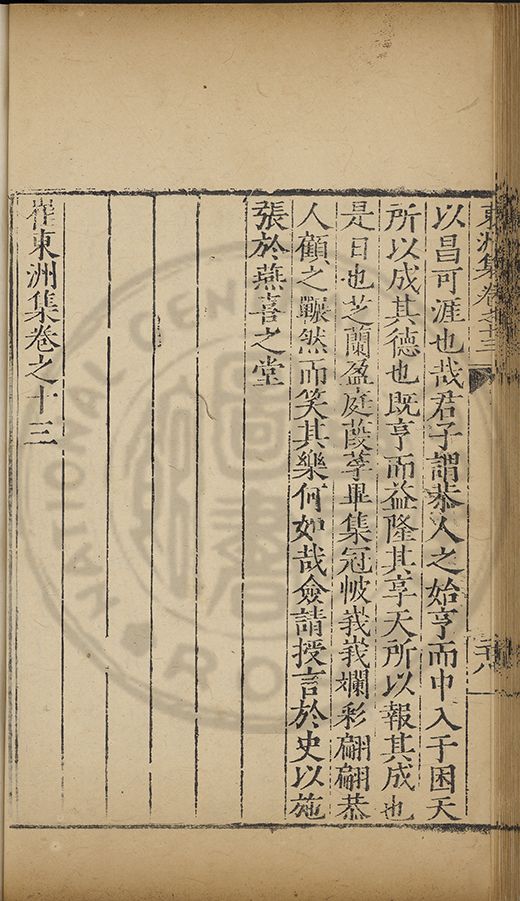 東洲集卷之十三
以昌可涯也哉君子謂恭人之始亨而中入于困天
所以成其德也既亨而益隆其享天所以報其成也
是日也芝蘭盈庭葭莩畢集冠帔峩峩斕彩翩翩恭
人顧之囅然而笑其樂何如哉僉請授言於史以施
張於燕喜之堂
崔東洲集卷之十三